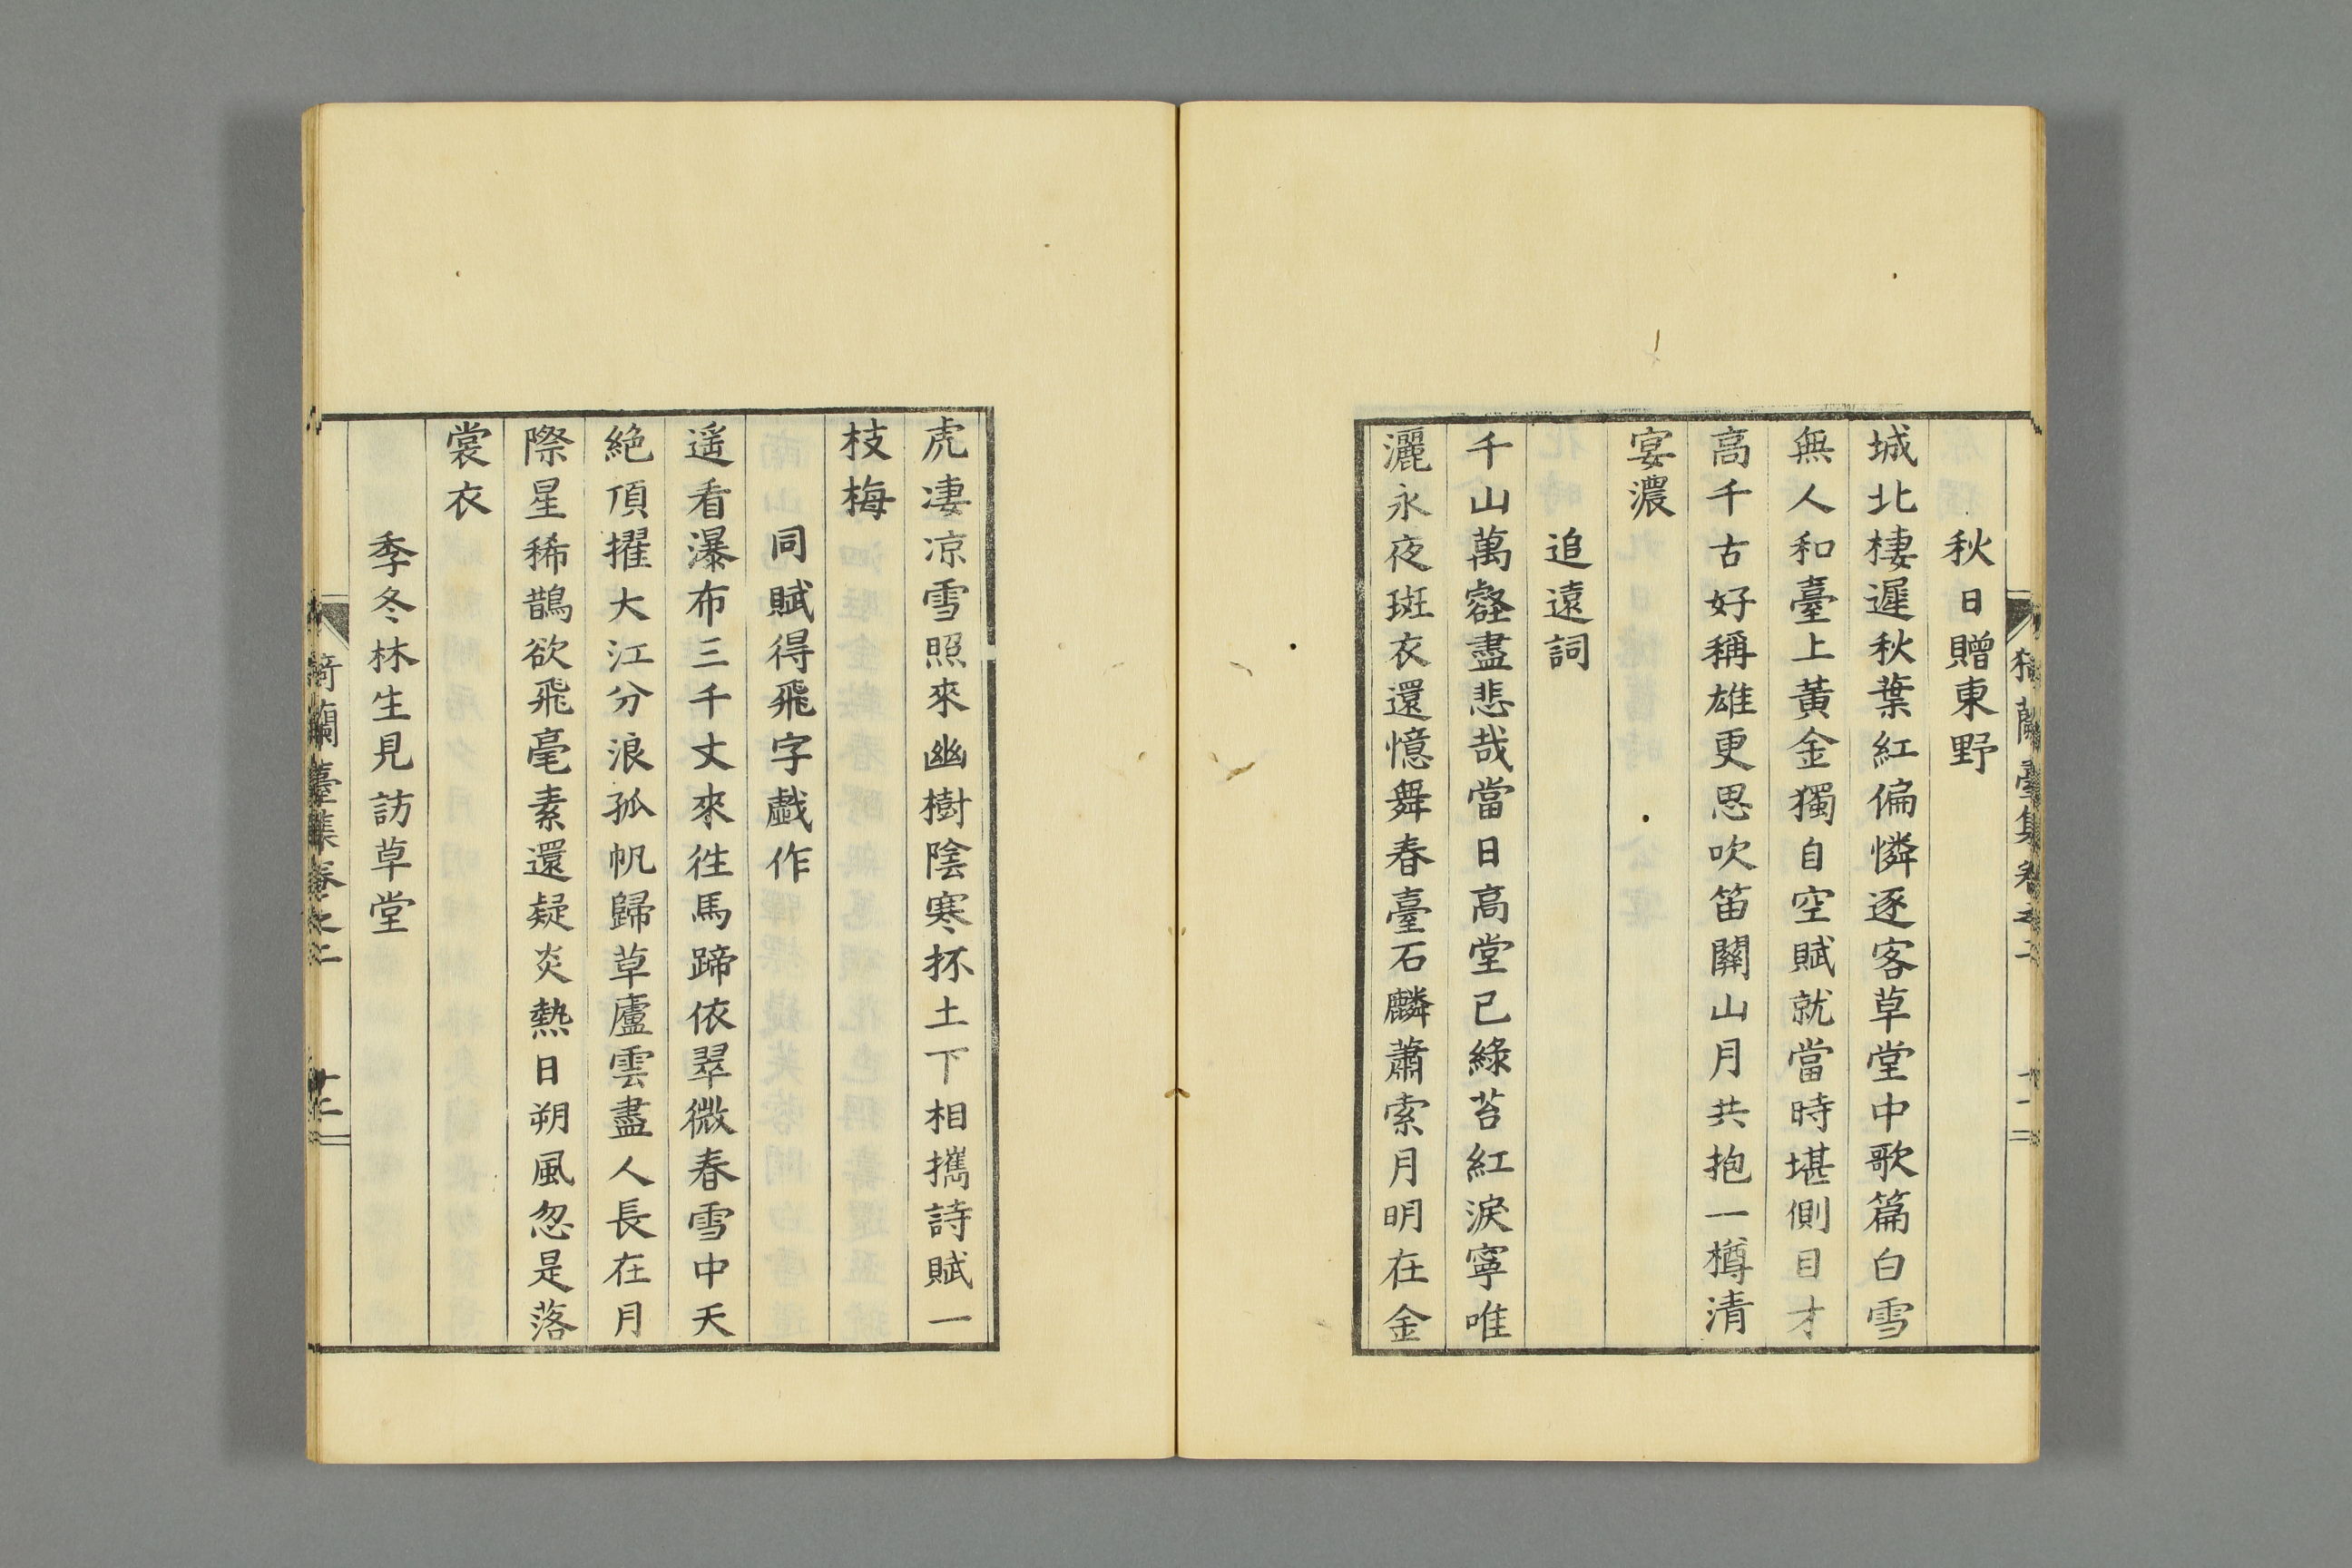 秋日贈東野
城北棲遲秋葉紅偏憐逐客草堂中歌篇白雪
無人和臺上黃金獨自空賦就當時堪側目才
高千古好稱雄更思吹笛關山月共抱一樽清
宴濃
追遠詞
千山萬壑盡悲哉當日高堂已綠苔紅淚寧唯
灑永夜斑衣還憶舞春臺石麟蕭索月明在金
虎凄凉雪照來幽樹陰寒抔土下相攜詩賦一
枝梅
同賦得飛字戲作
遥看瀑布三千丈來往馬蹄依翠微春雪中天
絶頂擢大江分浪孤帆歸草廬雲盡人長在月
際星稀鵲欲飛毫素還疑炎熱日朔風忽是落
裳衣
季冬林生見訪草堂
猗蘭臺集卷之二